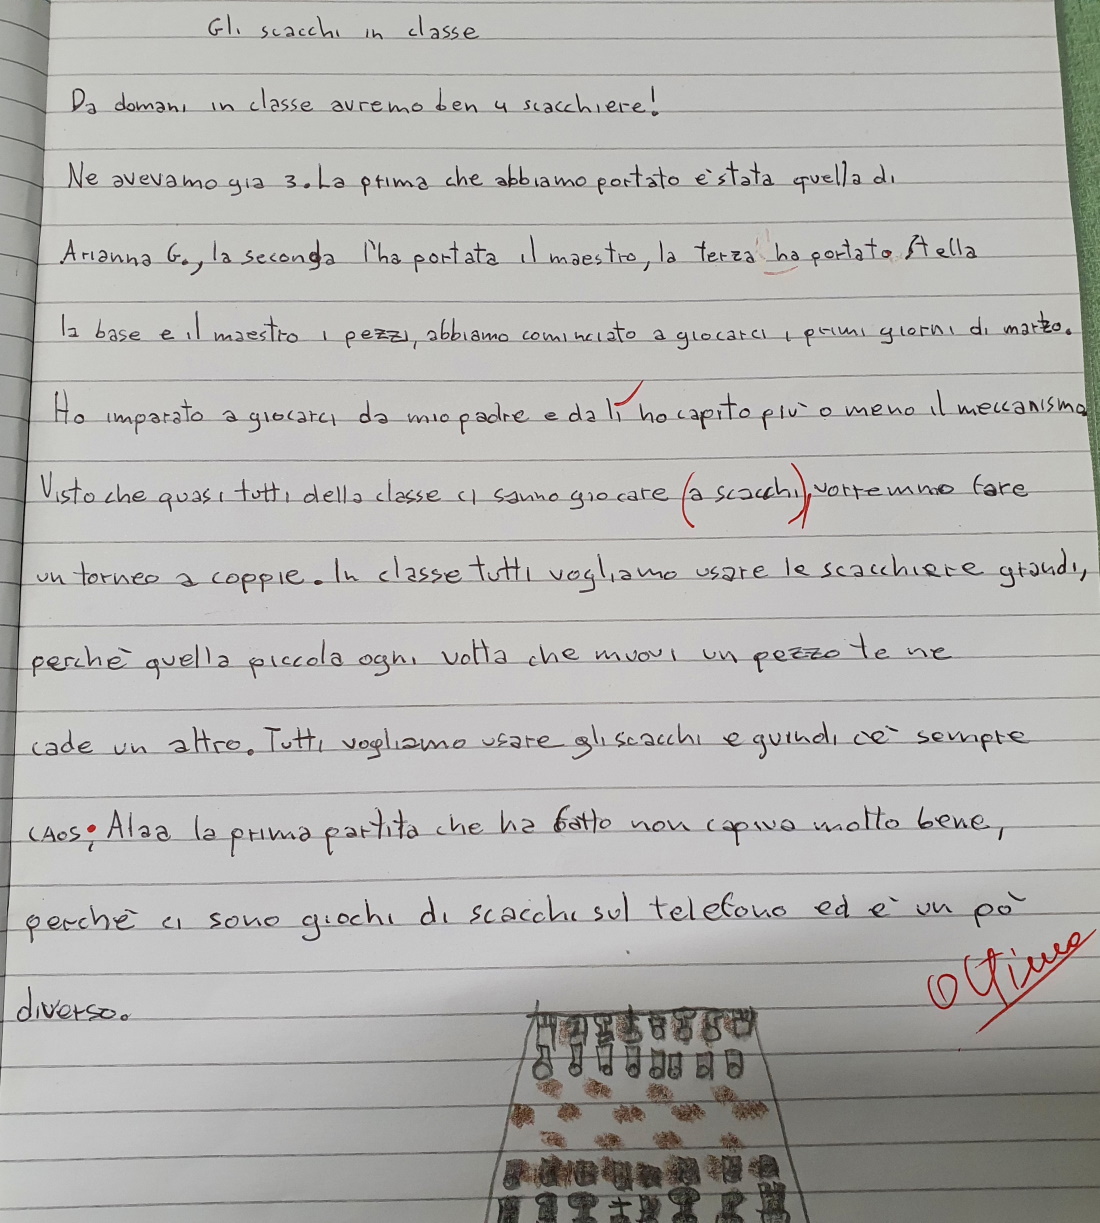 Gli scacchi in classe
Da domani in classe avremo ben 4 scacchiere!
Ne avevamo gia 3. La prima che abbiamo portato è stata quella di
Arianna G., la seconda l'ha portata il maestro, la terza ha portato Stella
la base e il maestro i pezzi, abbiamo cominciato a giocarci i primi giorni di marzo.
Ho imparato a giocarci da mio padre e da lì ho capito più o meno il meccanismo
Visto che quasi tutti della classe ci sanno giocare (a scacchi), vorremmo fare
un torneo a coppie. In classe tutti vogliamo usare le scacchiere grandi,
perchè quella piccola ogni volta che muovi un pezzo te ne
cade un altro. Tutti vogliamo usare gli scacchi e quindi c'è sempre
CAOS; Alaa la prima partita che ha fatto non capiva molto bene,
perchè ci sono giochi di scacchi sul telefono ed è un pò
diverso.
Ottimo